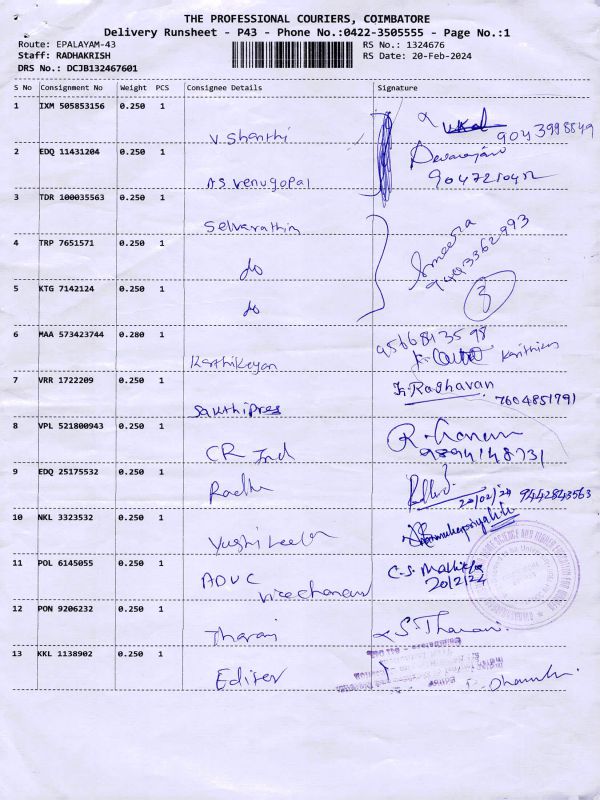 THE PROFESSIONAL COURIERS, COIMBATORE
Delivery Runsheet - P43 - Phone No.:0422-3505555 - Page No.:1
Route: EPALAYAM-43 RS No.: 1324676
Staff: RADHAKRISH RS Date: 20-Feb-2024
DRS No.: DCJB132467601
S No Consignment No Weight PCS Consignee Details Signature
1 IXM 505853156 0.250 1
V. Shanthi
2 EDQ 11431204 0.250 1 Devarajan
AS Venugopal
3 TDR 100035563 0.250 1
Selvarathin
4 TRP 7651571 0.250 1 Smeera
do 9443362993
5 KTG 7142124 0.250 1 3
do
6 MAA 573423744 0.280 1
Karthikeyan
7 VRR 1722209 0.250 1 K. Raghavan
Sakthi Pres 7604851791
8 VPL 521800943 0.250 1
CR Ind
9 EDQ 25175532 0.250 1
Radha 20/02/24 9442843563
10 NKL 3323532 0.250 1
11 POL 6145055 0.250 1 C.S.
ADVC 20/2/24
12 PON 9206232 0.250 1
Tharani S. Tharani.
13 KKL 1138902 0.250 1
Editer